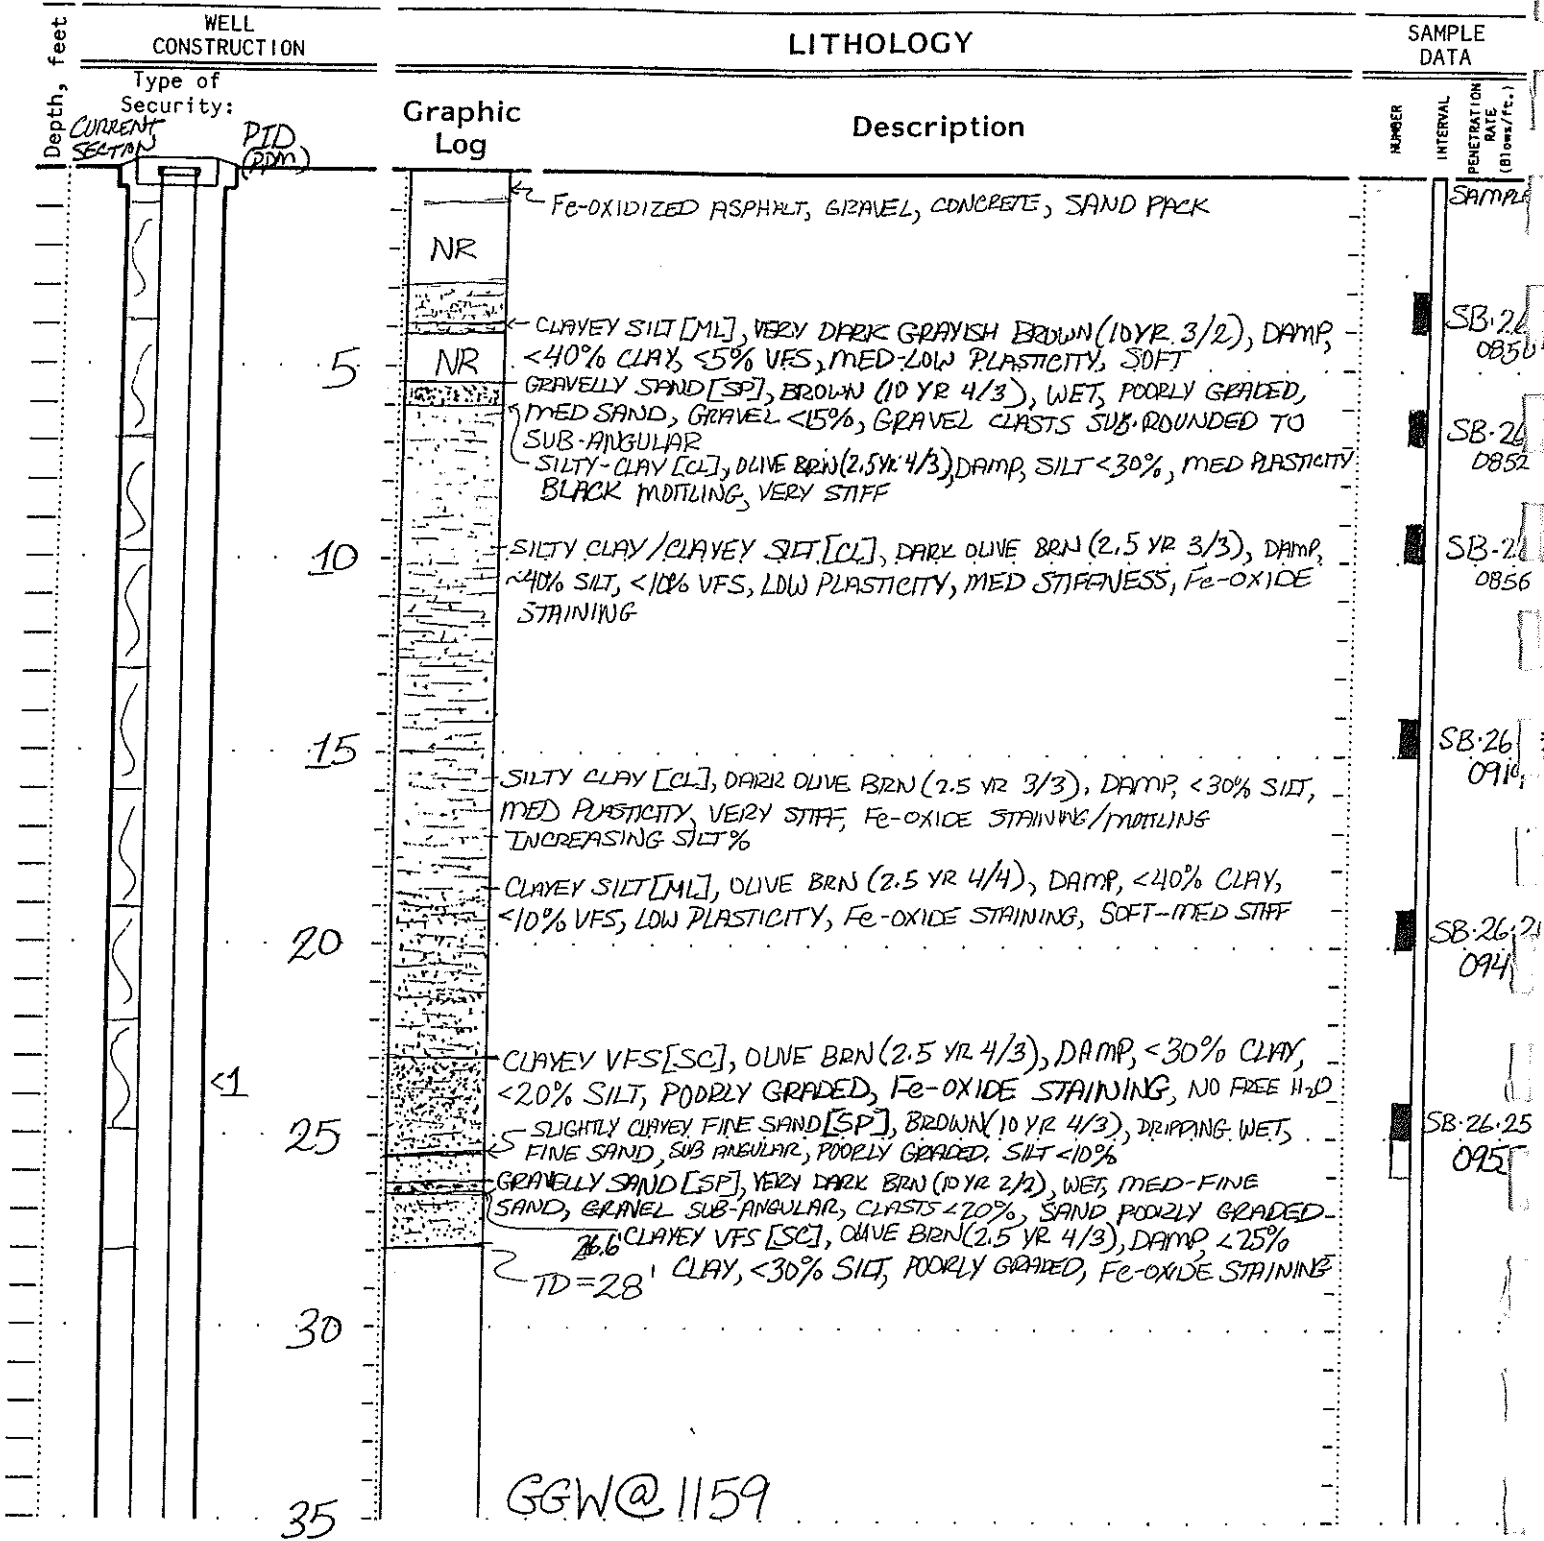 Depth, feet
WELL
CONSTRUCTION
LITHOLOGY
SAMPLE
DATA
Type of
Security:
CURRENT
SECTION
PID
(PPM)
Graphic
Log
Description
NUMBER
INTERVAL
PENETRATION
RATE
(Blows/ft.)
SAMPLE
Fe-OXIDIZED ASPHALT, GRAVEL, CONCRETE, SAND PACK
NR
CLAYEY SILT [ML], VERY DARK GRAYISH BROWN (10YR 3/2), DAMP,
<40% CLAY, <5% VFS, MED-LOW PLASTICITY, SOFT
SB-26
0850
5
NR
GRAVELLY SAND [SP], BROWN (10 YR 4/3), WET, POORLY GRADED,
MED SAND, GRAVEL <15%, GRAVEL CLASTS SUB-ROUNDED TO
SUB-ANGULAR
SB-26
0852
SILTY-CLAY [CL], OLIVE BRN (2.5YR 4/3), DAMP, SILT <30%, MED PLASTICITY
BLACK MOTTLING, VERY STIFF
10
SILTY CLAY/CLAYEY SILT [CL], DARK OLIVE BRN (2.5 YR 3/3), DAMP,
~40% SILT, <10% VFS, LOW PLASTICITY, MED STIFFNESS, Fe-OXIDE
STAINING
SB-2
0856
15
SB-26
091
SILTY CLAY [CL], DARK OLIVE BRN (2.5 YR 3/3), DAMP, <30% SILT,
MED PLASTICITY, VERY STIFF, Fe-OXIDE STAINING/MOTTLING
INCREASING SILT %
CLAYEY SILT [ML], OLIVE BRN (2.5 YR 4/4), DAMP, <40% CLAY,
<10% VFS, LOW PLASTICITY, Fe-OXIDE STAINING, SOFT-MED STIFF
20
SB-26-2
094
CLAYEY VFS [SC], OLIVE BRN (2.5 YR 4/3), DAMP, <30% CLAY,
<20% SILT, POORLY GRADED, Fe-OXIDE STAINING, NO FREE H2O
<1
25
SLIGHTLY CLAYEY FINE SAND [SP], BROWN (10 YR 4/3), DRIPPING WET,
FINE SAND, SUB ANGULAR, POORLY GRADED. SILT <10%
SB-26-25
095
GRAVELLY SAND [SP], VERY DARK BRN (10 YR 2/2), WET, MED-FINE
SAND, GRAVEL SUB-ANGULAR, CLASTS <20%, SAND POORLY GRADED
26.6' CLAYEY VFS [SC], OLIVE BRN (2.5 YR 4/3), DAMP, <25%
CLAY, <30% SILT, POORLY GRADED, Fe-OXIDE STAINING
TD=28'
30
35
GGW@1159